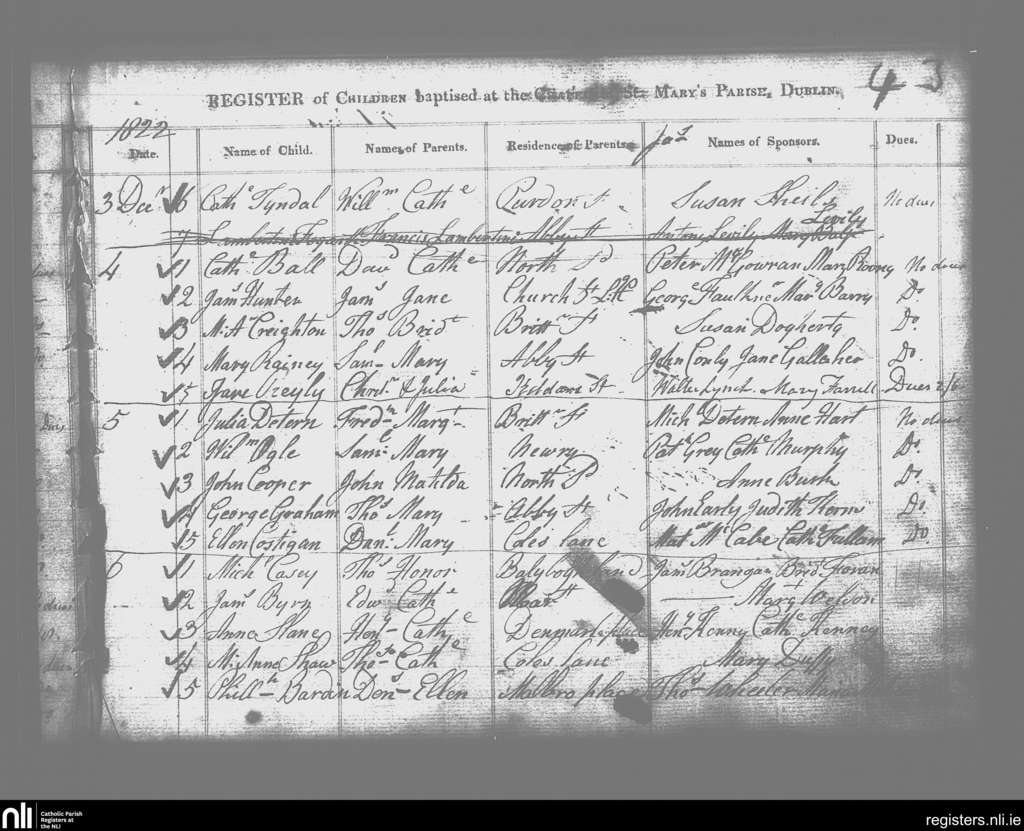 4 3
REGISTER of CHILDREN baptised at the CHAPEL St. MARY'S PARISH, DUBLIN.
1822
Date. Name of Child. Names of Parents. Residence of Parents. Names of Sponsors. Dues.
3 Decr 6 Cathe Tyndal Willm Cathe Purdon St Susan Sheil No dues
7 Lambertini Francis Lambertini Abby St Antony Levily Mary Levily
4 1 Cathe Ball Davd Cathe North Sd Peter McGowran Mary Roony No dues
2 Jams Hunter Jams Jane Church St George Faulkner Marg Barry Do
3 M. A Creighton Thos Bridt Brittn St Susan Dogherty Do
4 Mary Rainey Saml Mary Abby St John Conly Jane Gallagher Do
5 Jane & Julia Kildare St Walter Lynch Mary Farrell Dues 2/6
5 1 Julia Detern Fredk Margt Brittn St Mich Detern Anne Hart No dues
2 Wilm Ogle Saml Mary Newry Patk Grey Cathe Murphy Do.
3 John Cooper John Matilda North Sd Anne Burke Do.
4 George Graham Thos Mary Abby St John Early Judith Do.
5 Ellen Costigan Danl Mary Coles lane Mat McCabe Cathe Fullam Do
6 1 Mich Casey Thos Honor Jams Brangan Brid
2 Jams Byrn Edwd Cathe St Mary Weldon
3 Anne Kane Heny Cathe Denmark place Heny Kenny Cathe Kenney
4 M. Anne Shaw Thos Cathe Coles lane Mary Duffy
5 Bardin Dens Ellen Malbro place Thos Wheeler
nli Catholic Parish
Registers at
the NLI
registers.nli.ie